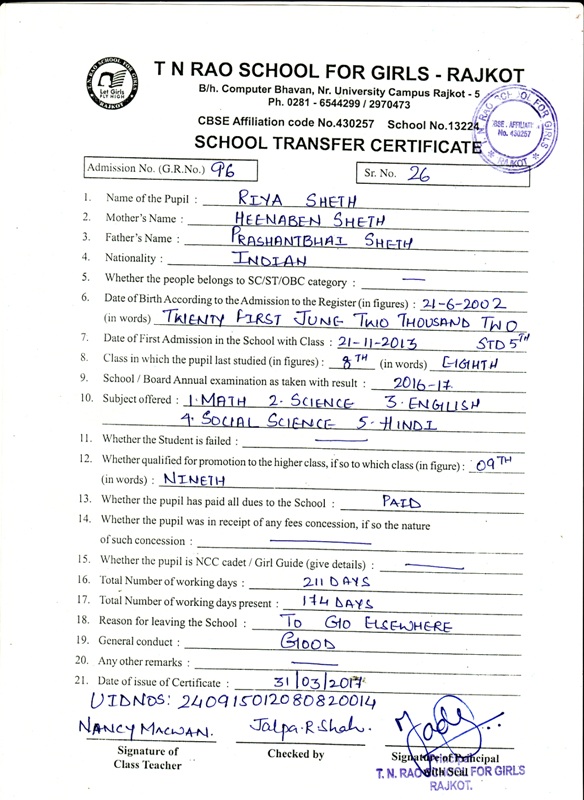 T. N. RAO SCHOOL FOR GIRLS
Let Girls
FLY HIGH
RAJKOT
T N RAO SCHOOL FOR GIRLS - RAJKOT
B/h. Computer Bhavan, Nr. University Campus Rajkot - 5
Ph. 0281 - 6544299 / 2970473
CBSE Affiliation code No.430257 School No.13224
SCHOOL TRANSFER CERTIFICATE
T. N. RAO SCHOOL FOR GIRLS
No. 430257
RAJKOT
Admission No. (G.R.No.) 96 Sr. No. 26
1. Name of the Pupil : RIYA SHETH
2. Mother's Name : HEENABEN SHETH
3. Father's Name : PRASHANTBHAI SHETH
4. Nationality : INDIAN
5. Whether the people belongs to SC/ST/OBC category : —
6. Date of Birth According to the Admission to the Register (in figures) : 21-6-2002
(in words) TWENTY FIRST JUNE TWO THOUSAND TWO
7. Date of First Admission in the School with Class : 21-11-2013 STD 5TH
8. Class in which the pupil last studied (in figures) : 8TH (in words) EIGHTH
9. School / Board Annual examination as taken with result : 2016-17
10. Subject offered : 1. MATH 2. SCIENCE 3. ENGLISH
4. SOCIAL SCIENCE 5. HINDI
11. Whether the Student is failed : —
12. Whether qualified for promotion to the higher class, if so to which class (in figure) : 09TH
(in words) : NINETH
13. Whether the pupil has paid all dues to the School : PAID
14. Whether the pupil was in receipt of any fees concession, if so the nature
of such concession : —
15. Whether the pupil is NCC cadet / Girl Guide (give details) : —
16. Total Number of working days : 211 DAYS
17. Total Number of working days present : 174 DAYS
18. Reason for leaving the School : TO GO ELSEWHERE
19. General conduct : GOOD
20. Any other remarks : —
21. Date of issue of Certificate : 31/03/2017
UIDNOS: 240915012080820014
NANCY MACWAN. Jalpa.R.Shah.
Signature of Class Teacher
Checked by
Signature of Principal
with Seal
T. N. RAO SCHOOL FOR GIRLS
RAJKOT.